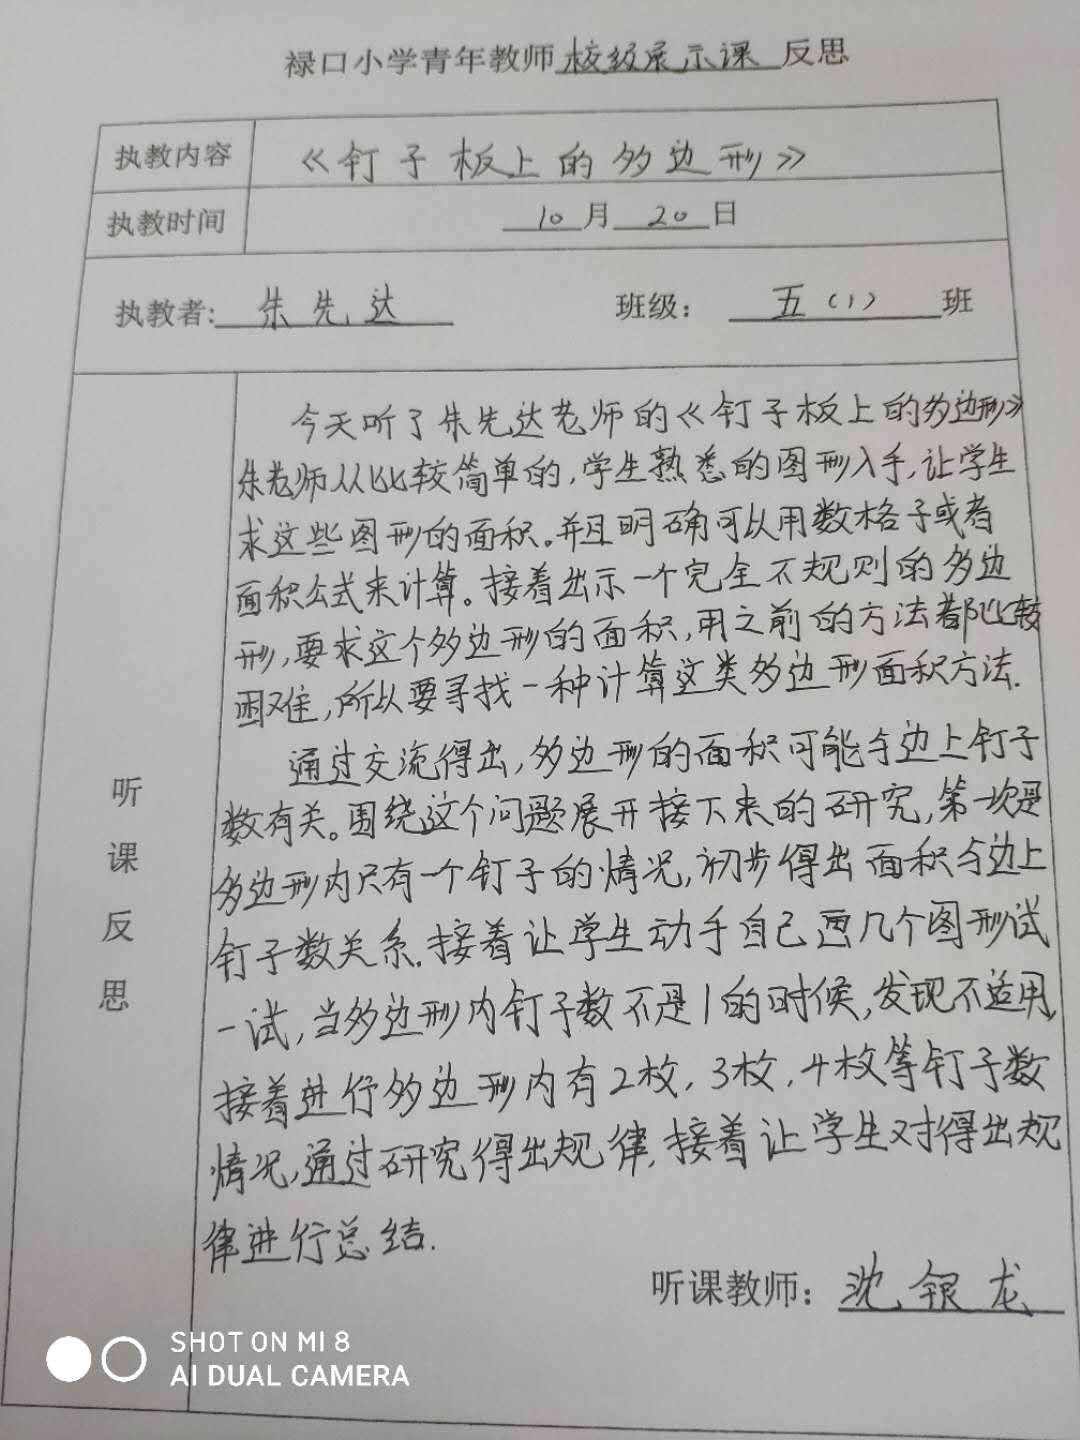 禄口小学青年教师校级展示课反思
执教内容 《钉子板上的多边形》
执教时间 10月20日
执教者:朱先达 班级：五(1)班
听课反思
今天听了朱先达老师的《钉子板上的多边形》
朱老师从比较简单的,学生熟悉的图形入手,让学生
求这些图形的面积。并且明确可以用数格子或者
面积公式来计算。接着出示一个完全不规则的多边
形,要求这个多边形的面积,用之前的方法都比较
困难,所以要寻找一种计算这类多边形面积方法.
通过交流得出,多边形的面积可能与边上钉子
数有关。围绕这个问题展开接下来的研究,第一次是
多边形内只有一个钉子的情况,初步得出面积与边上
钉子数关系.接着让学生动手自己画几个图形试
一试,当多边形内钉子数不是1的时候,发现不适用,
接着进行多边形内有2枚,3枚,4枚等钉子数
情况,通过研究得出规律,接着让学生对得出规
律进行总结.
听课教师：沈银龙
SHOT ON MI 8
AI DUAL CAMERA